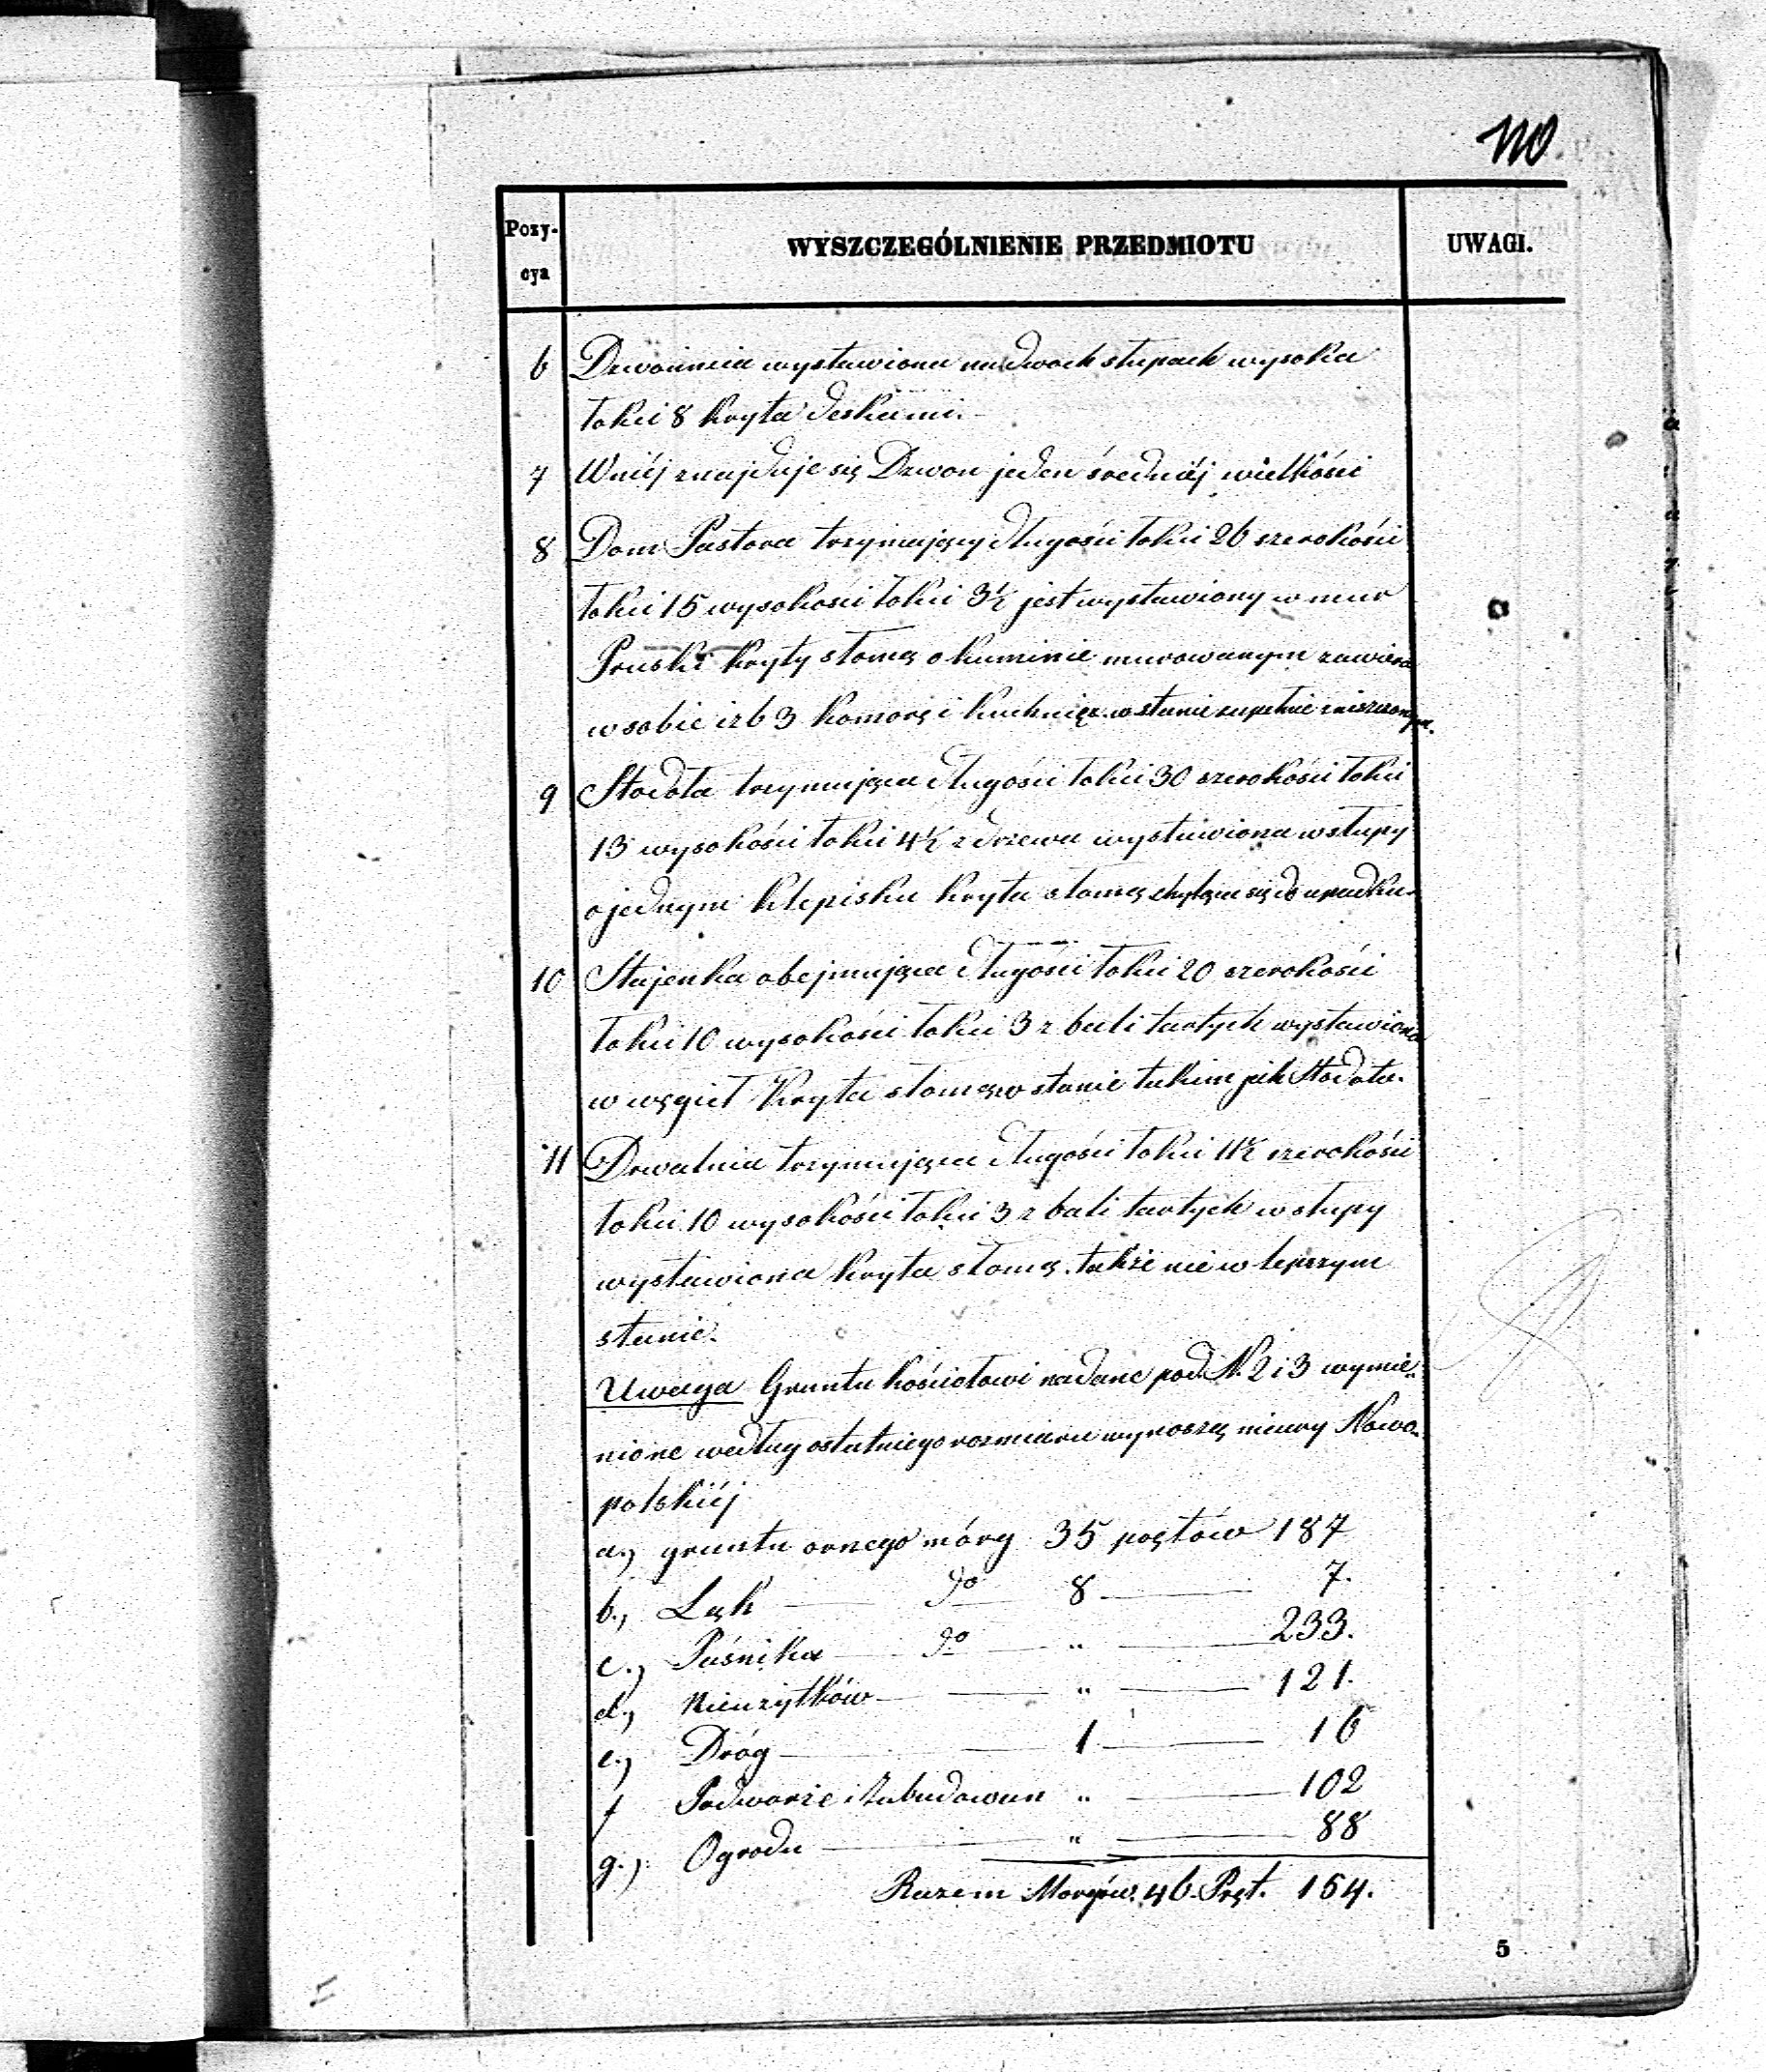 110.
Pozy-
cya
WYSZCZEGÓLNIENIE PRZEDMIOTU
UWAGI.
6 Dzwonnica wystawiona na dwoch słupach wysoka
łokci 8 kryta deskami.
7 W niéj znajduje się Dzwon jeden średniéj wielkości
8 Dom Pastora trzymający długości łokci 26 szerokości
łokci 15 wysokości łokci 3½ jest wystawiony w mur
Pruski kryty słomą o kominie murowanym zawiera
w sobie izb 3 komorę i kuchnię w stanie zupełnie zniszczonym.
9 Stodoła trzymająca długości łokci 30 szerokości łokci
13 wysokości łokci 4½ z drzewa wystawiona w słupy
o jednym klepisku kryta słomą chyląca się do upadku.
10 Stajenka obejmująca długości łokci 20 szerokości
łokci 10 wysokości łokci 3 z bali tartych wystawiona
w węgieł kryta słomą w stanie takim jak Stodoła.
11 Drwalnia trzymająca długości łokci 11½ szerokości
łokci 10 wysokości łokci 3 z bali tartych w słupy
wystawiona kryta słomą. także nie w lepszym
stanie.
Uwaga Grunta kościołowi nadane pod N. 2 i 3 wymie-
nione według ostatniego rozmiaru wynoszą miary Nowo-
polskiéj
a.) gruntu ornego mórg 35 prętów 187
b.) Łąk — do 8 — 7.
c.) Paśnika — do " — 233.
d.) Nieużytków — " — 121.
e.) Dróg — 1 — 16
f Podworze i Zabudowan " — 102
g.) Ogrodu — " — 88
Razem Morgów. 46. Pręt. 154.
5